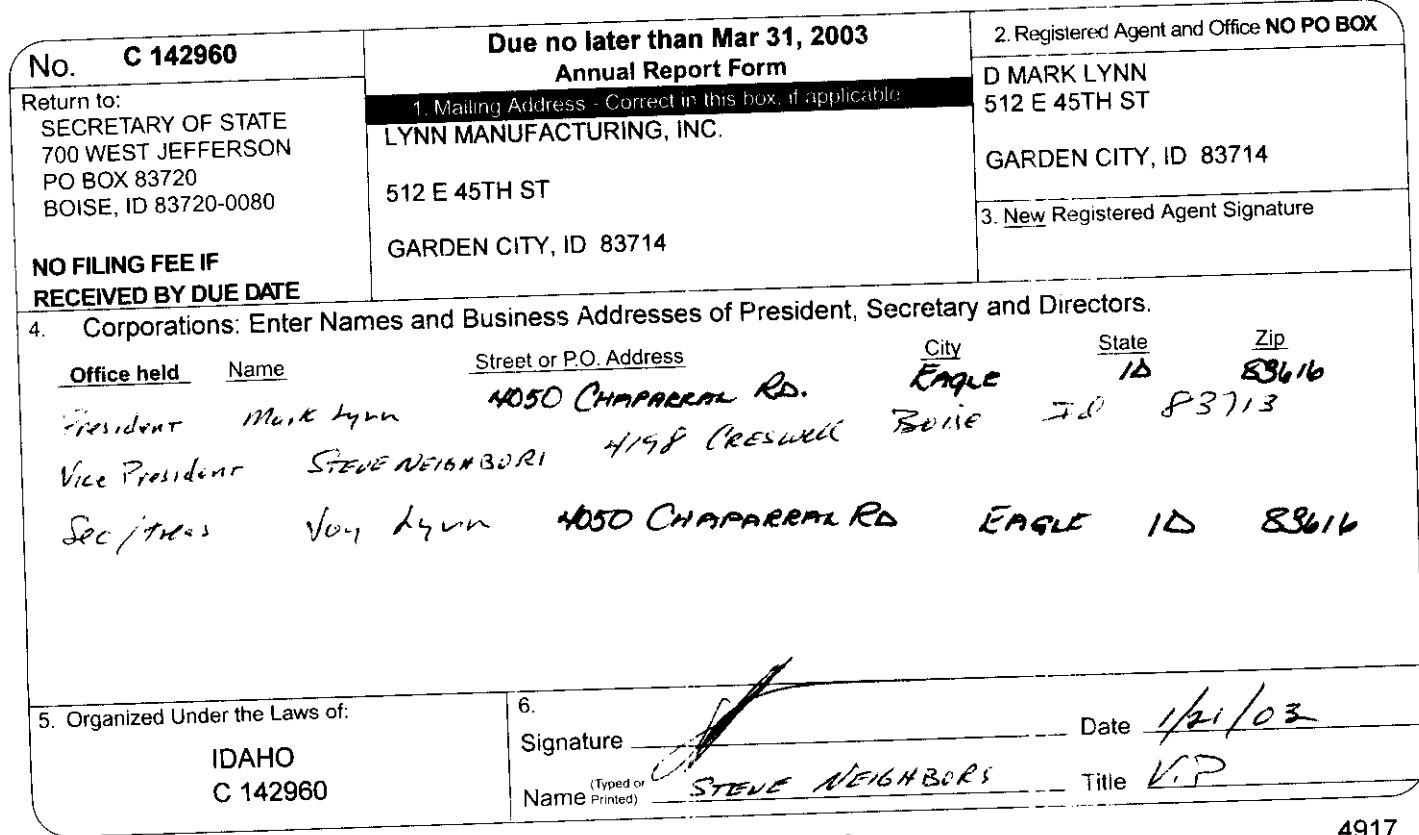 No. C 142960
Return to:
SECRETARY OF STATE
700 WEST JEFFERSON
PO BOX 83720
BOISE, ID 83720-0080
NO FILING FEE IF
RECEIVED BY DUE DATE
Due no later than Mar 31, 2003
Annual Report Form
1. Mailing Address - Correct in this box, if applicable
LYNN MANUFACTURING, INC.
512 E 45TH ST
GARDEN CITY, ID 83714
2. Registered Agent and Office NO PO BOX
D MARK LYNN
512 E 45TH ST
GARDEN CITY, ID 83714
3. New Registered Agent Signature
4. Corporations: Enter Names and Business Addresses of President, Secretary and Directors.
Office held Name Street or P.O. Address City State Zip
President Mark Lynn 4050 CHAPARRAL RD. EAGLE ID 83616
Vice President STEVE NEIGHBORS 4198 CRESWELL BOISE Id 83713
Sec/treas Lynn 4050 CHAPARRAL RD EAGLE ID 83616
5. Organized Under the Laws of:
IDAHO
C 142960
6.
Signature Date 1/21/03
Name (Typed or Printed) STEVE NEIGHBORS Title V.P
4917